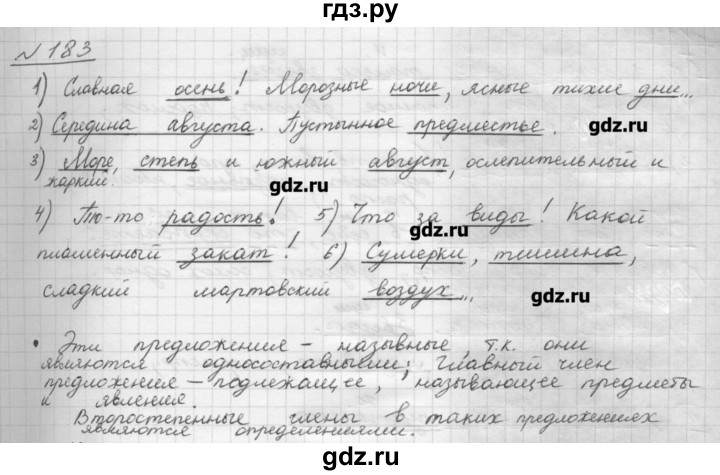 гдз.ру
№ 183
1) Славная осень! Морозные ночи, ясные тихие дни...
2) Середина августа. Пустынное предместье.
gdz.ru
3) Море, степь и южный август, ослепительный и
жаркий.
gdz.ru
4) То-то радость! 5) Что за виды! Какой
gdz.ru
пламенный закат! 6) Сумерки, тишина,
сладкий мартовский воздух...
gdz.ru
• Эти предложения – назывные, т.к. они
являются односоставными; Главный член
предложения – подлежащее, называющее предметы
и явления.
Второстепенные члены в таких предложениях
являются определениями.
gdz.ru